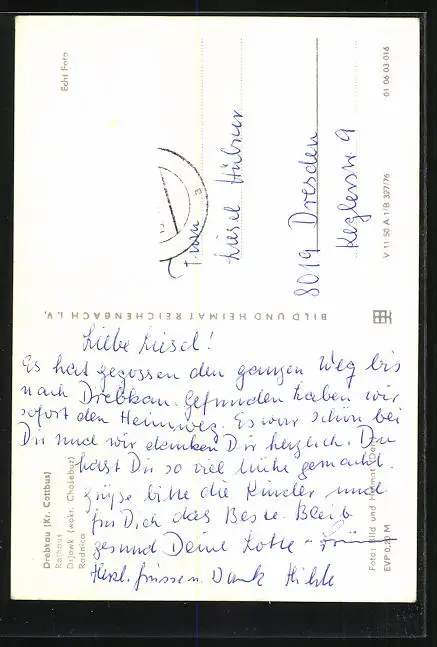 Liebe Liesel!
Es hat gegossen den ganzen Weg bis
nach Drebkau. Gefunden haben wir
sofort den Heimweg. Es war schön bei
Dir und wir danken Dir herzlich. Du
hast Dir so viel Mühe gemacht.
Grüße bitte die Kinder und
für Dich das Beste. Bleib
gesund Deine Lotte
Herzl. Grüssen Dank
Frau
Liesel Hübner
8019 Dresden
Keglerstr 9
Drebkau (Kr. Cottbus)
Rathaus
Drjowk (wokr. Chośebuz)
Radnica
Echt Foto
BILD UND HEIMAT REICHENBACH i. V.
V 11 50 A 1/B 327/76
01 06 03 016
Foto: Bild und Heimat
EVP 0,20 M